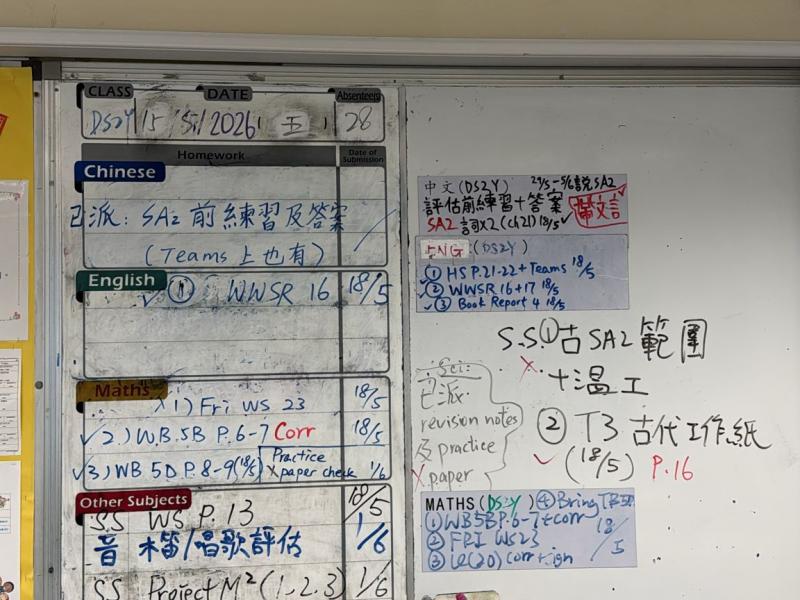 CLASS DATE Absentees
DS2Y 15 / 5 / 2026 五 28
Homework Date of Submission
Chinese
已派: SA2 前練習及答案
(Teams 上也有)
English
✓ ① WWSR 16 18/5
Maths
x 1) Fri WS 23 18/5
✓ 2) WB 5B P.6-7 Corr 18/5
✓ 3) WB 5D P.8-9 (18/5) Practice x paper check 1/6
Other Subjects
S.S WS P. 13 18/5
音 木笛/唱歌評估 1/6
S.S Project M² (1-2.3) 1/6
中文 (DS2Y) 29/5-5/6 説SA2
評估前練習+答案 帶文言
SA2 詞x2 (ch21) 18/5 ✓
ENG (DS2Y)
✓ ① HS P.21-22 + Teams 18/5
✓ ② WWSR 16+17 18/5
✓ ③ Book Report 4 18/5
S.S. ① 古 SA2 範圍
x + 温工
② T3 古代工作紙
✓ (18/5) P.16
Sci:
已派
revision notes
及 practice
x paper
MATHS (DS2Y) ④ Bring TB 5D
① WB5B P.6-7 + corr 18/5
② FRI WS23
③ (20) corr + sign